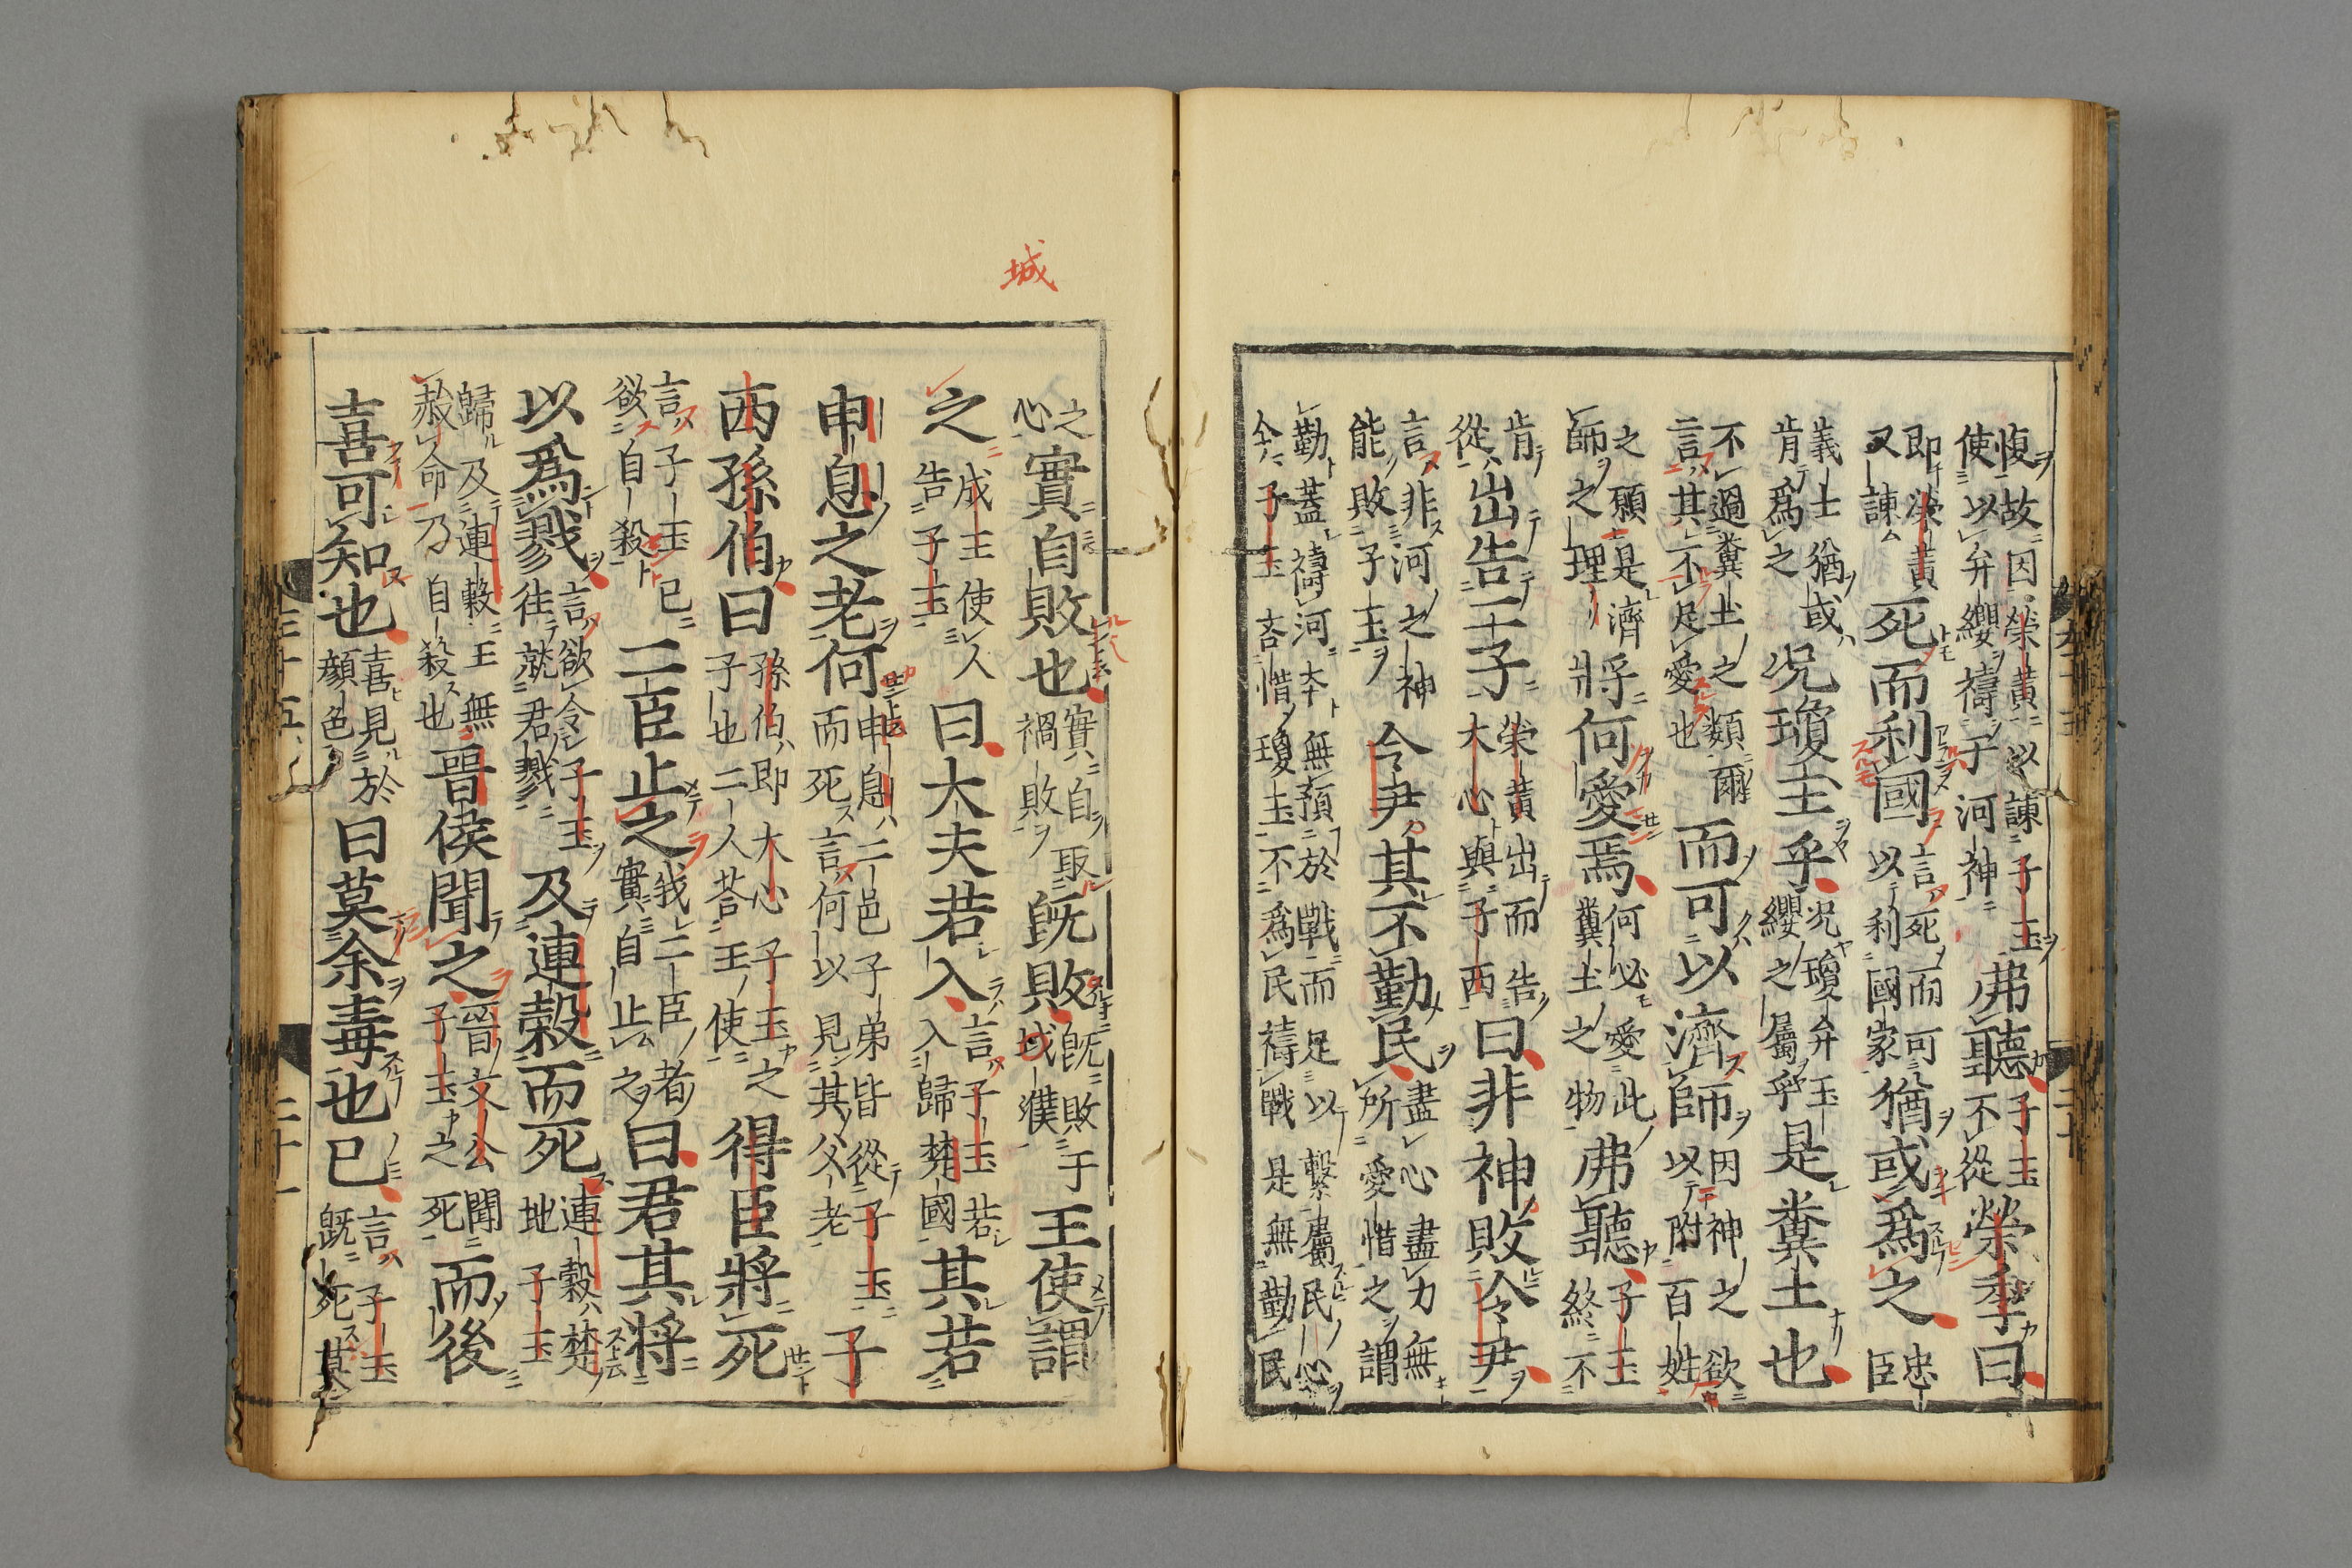 愎故因榮黄以諫子玉
使以弁纓禱于河神
弗聽
子玉
不從
榮季曰
忠
即榮黄
又諫
死而利國
言死而可
以利國家
猶或爲之
忠
臣
義士猶或
肯爲之
况瓊玉乎
况瓊弁玉
纓之屬乎
是糞土也
不過糞土之類爾
言其不足愛也
而可以濟師
因神之欲
以附百姓
之願是濟
師之理
將何愛焉
何必愛此
糞土之物
弗聽
子玉
終不
肯
從
出告二子
榮黄出而告
大心與子西
曰非神敗令尹
言非河之神
能敗子玉
令尹其不勤民
盡心盡力無
所愛惜之謂
勤蓋禱河本無預於戰而足以繫屬民心
今子玉吝惜瓊玉不爲民禱戰是無勤民
城
之
心
實自敗也
實自取
禍敗
既敗
既敗于
城濮
王使謂
之
成王使人
告子玉
曰大夫若入
言子玉若
入歸楚國
其若
申息之老何
申息二邑子弟皆從子玉
而死言何以見其父老
子
西孫伯曰
孫伯即大心子玉之
子也二人荅王使
得臣將死
言子玉已
欲自殺
二臣止之
我二臣者
實自止之
曰君其將
以爲戮
言欲令子玉
往就君戮
及連穀而死
連穀楚
地子玉
歸及連穀王無
赦命乃自殺也
晉侯聞之
晉文公聞
子玉之死
而後
喜可知也
喜見於
顔色
曰莫余毒也已
言子玉
既死莫